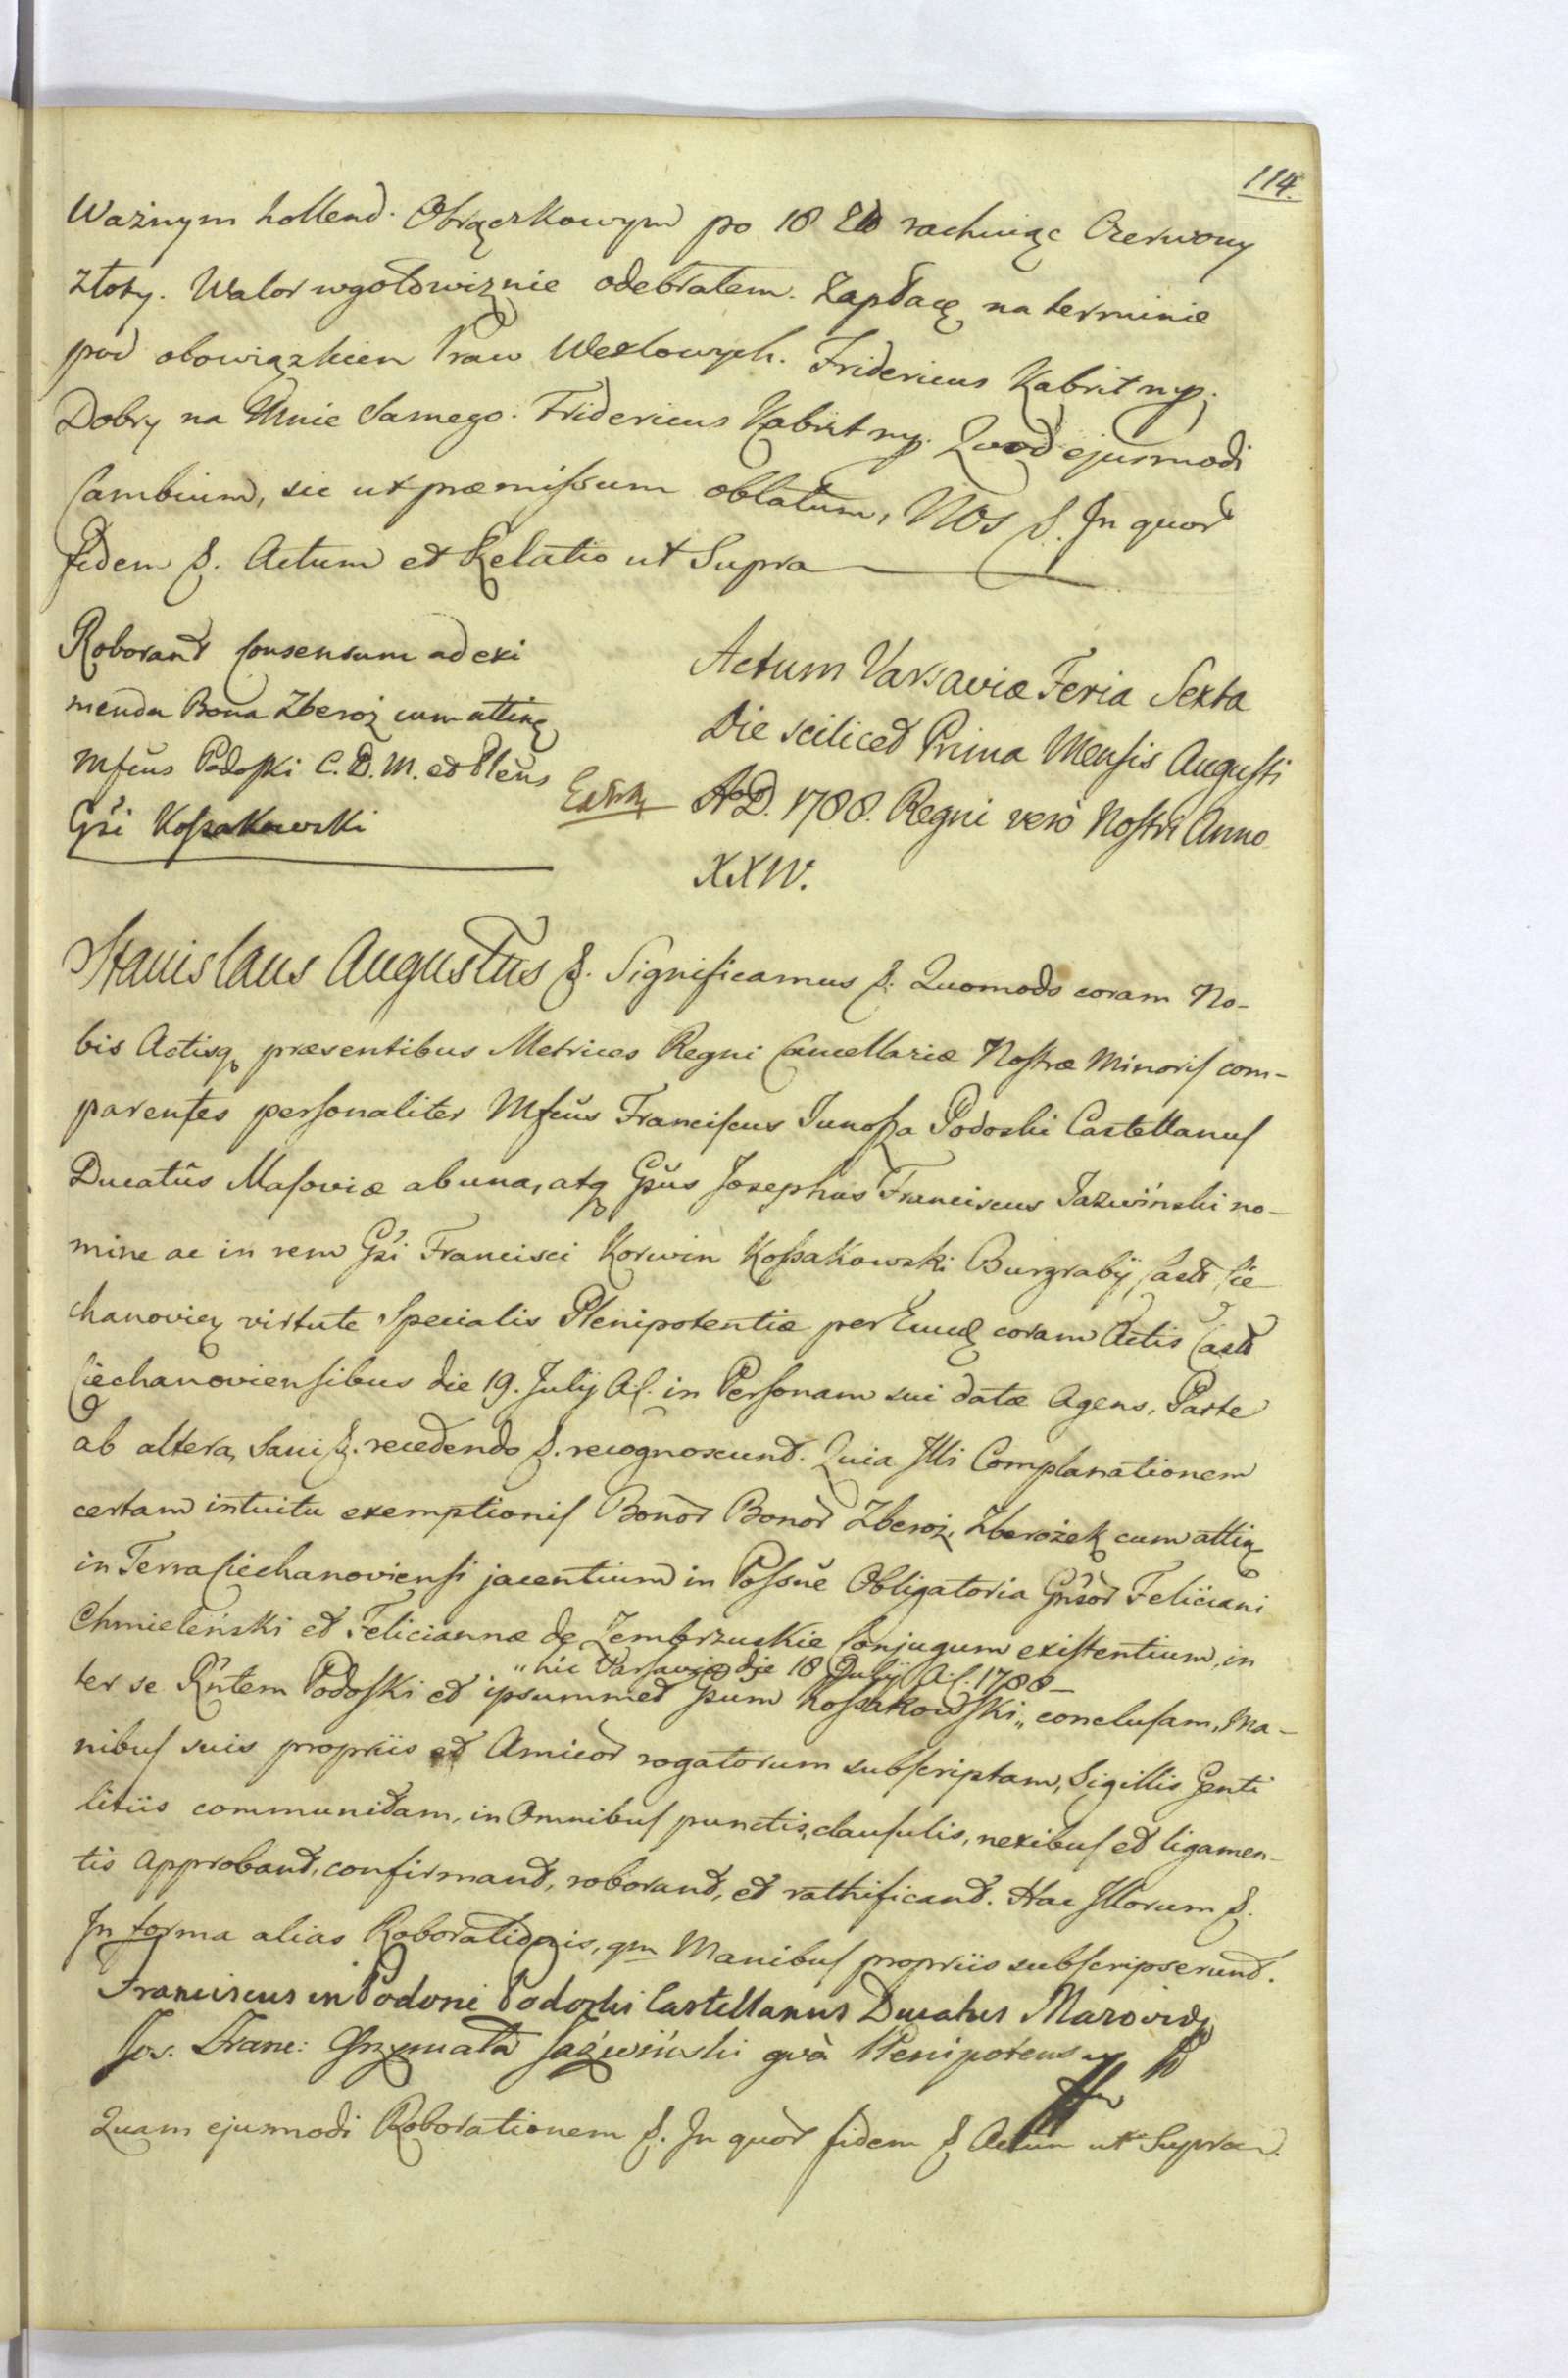 114.
Ważnym hollend. Obrączkowym po 18 Zło rachuiąc Czerwony
złoty. Walor wgotowiznie odebrałem. Zapłacę na terminie
pod obowiązkiem Praw Wexlowych. Fridericus Kabryt mp.
Dobry na Mnie Samego. Fridericus Kabryt mp. Quod ejusmodi
Cambium, sic ut præmissum oblatum, Nos &. In quor
fidem &. Actum et Relatio ut Supra
Roborant Consensum ad exi
menda Bona Zberoż cum attinę
Mfcus Podoski C. D. M. et Plenus
Gsi Kossakowski
Extr.
Actum Varsaviæ Feria Sexta
Die scilicet Prima Mensis Augusti
A.D. 1788. Regni verò Nostri Anno
XXIV.
Stanislaus Augustus &. Significamus &. Quomodo coram No-
bis Actisq præsentibus Metrices Regni Cancellariæ Nostræ Minoris com-
parentes personaliter Mfcus Franciscus Junosza Podoski Castellanus
Ducatûs Masoviæ ab una, atq Gsus Josephus Franciscus Jazwiński no-
mine ac in rem Gsi Francisci Korwin Kossakowski Burgrabij Castr Cie
chanovien virtute Specialis Plenipotentiæ per Eund coram Actis Castr
Ciechanoviensibus die 19. Julij A.C. in Personam sui datæ Agens, Parte
ab altera, Sani &. recedendo &. recognoscunt. Quia Illi Complanationem
certam intuitu exemptionis Bonor Bonor Zberoż, Zberożek cum attin
in Terra Ciechanoviensi jacentium in Possne Obligatoria Gnsor Feliciani
Chmieleński et Feliciannæ de Zembrzuskie Conjugum existentium, in
„hic Varsaviæ die 18 Julij A.C. 1788 –
ter se Rntem Podoski et ipsummet Gsum Kossakowski„ conclusam, Ma-
nibus suis propriis et Amicor rogatorum subscriptam, Sigillis Genti
litiis communitam, in Omnibus punctis, clausulis, nexibus et ligamen-
tis approbant, confirmant, roborant, et rathificant. Hac Illorum &.
In forma alias Roborationis, qm Manibus propriis subscripserunt.
Franciscus in Podonie Podoski Castellanus Ducatus Mazoviæ
Jos. Franc: Grzymała Jaźwiński quà Plenipotens mp
Quam ejusmodi Roborationem &. In quòr fidem & Actum ut Supra.